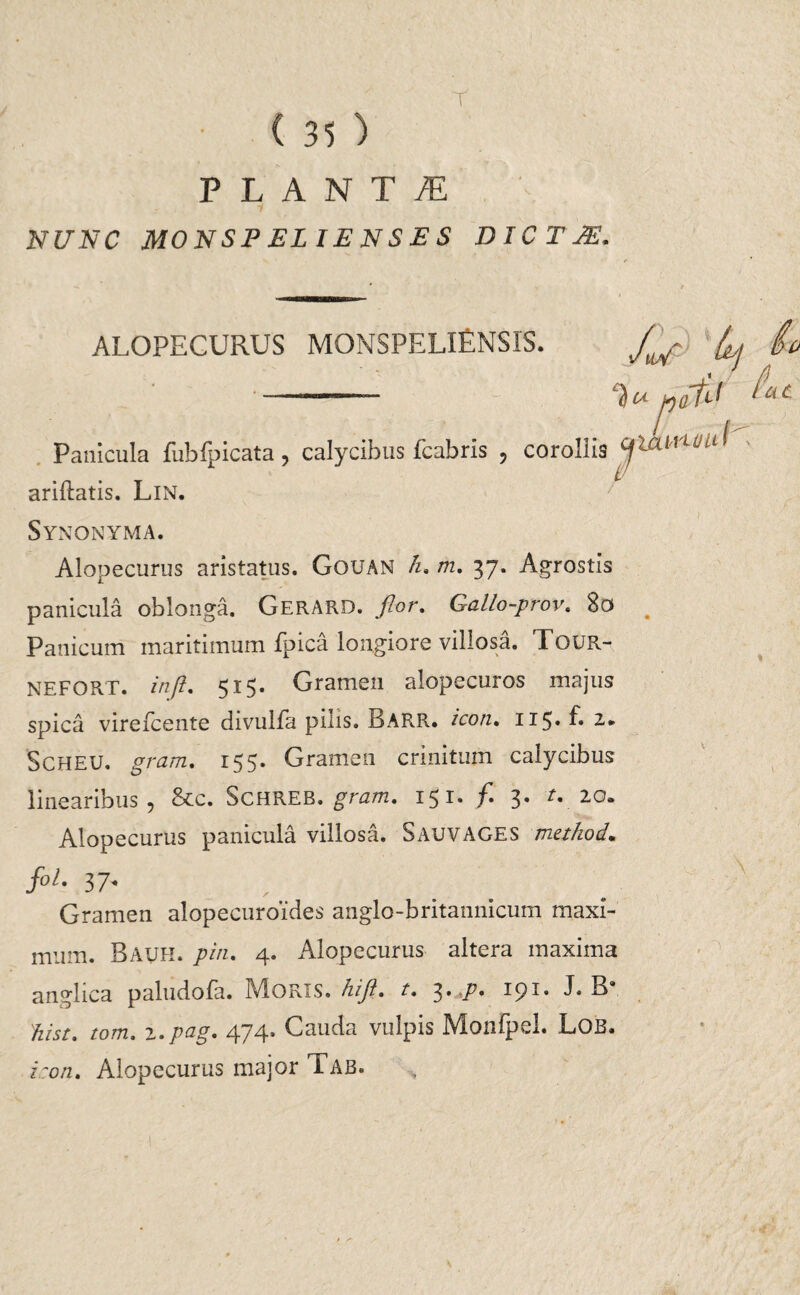 ( 35 )
PLANTÆ
NUNC MONSPELIENSES DICTÆ.
ALOPECURUS MONSPELIÈNSIS.
Sur
du petit lac
gramout
Panicula ſubſpicata, calycibus ſcabris, corollis
ariſtatis. LIN.
SYNONYMA.
Alopecurus aristatus. GOUAN h. m. 37. Agrostis
paniculâ oblongâ. GERARD. flor. Gallo-prov. 80
Panicum maritimum ſpicâ longiore villosâ. TOUR-
NEFORT. inſt. 515. Gramen alopecuros majus
spicâ vireſcente divulſa pilis. BARR. icon. 115. f. 2.
SCHEU. gram. 155. Gramen crinitum calycibus
linearibus, &c. SCHREB. gram. 151. f. 3. t. 20.
Alopecurus paniculâ villosâ. SAUVAGES method.
fol. 37.
Gramen alopecuroïdes anglo-britannicum maxi-
mum. BAUH. pin. 4. Alopecurus altera maxima
anglica paludoſa. MORIS. hiſt. t. 3. p. 191. J. B.
hist. tom. 2. pag. 474. Cauda vulpis Monſpel. LOB.
icon. Alopecurus major TAB.